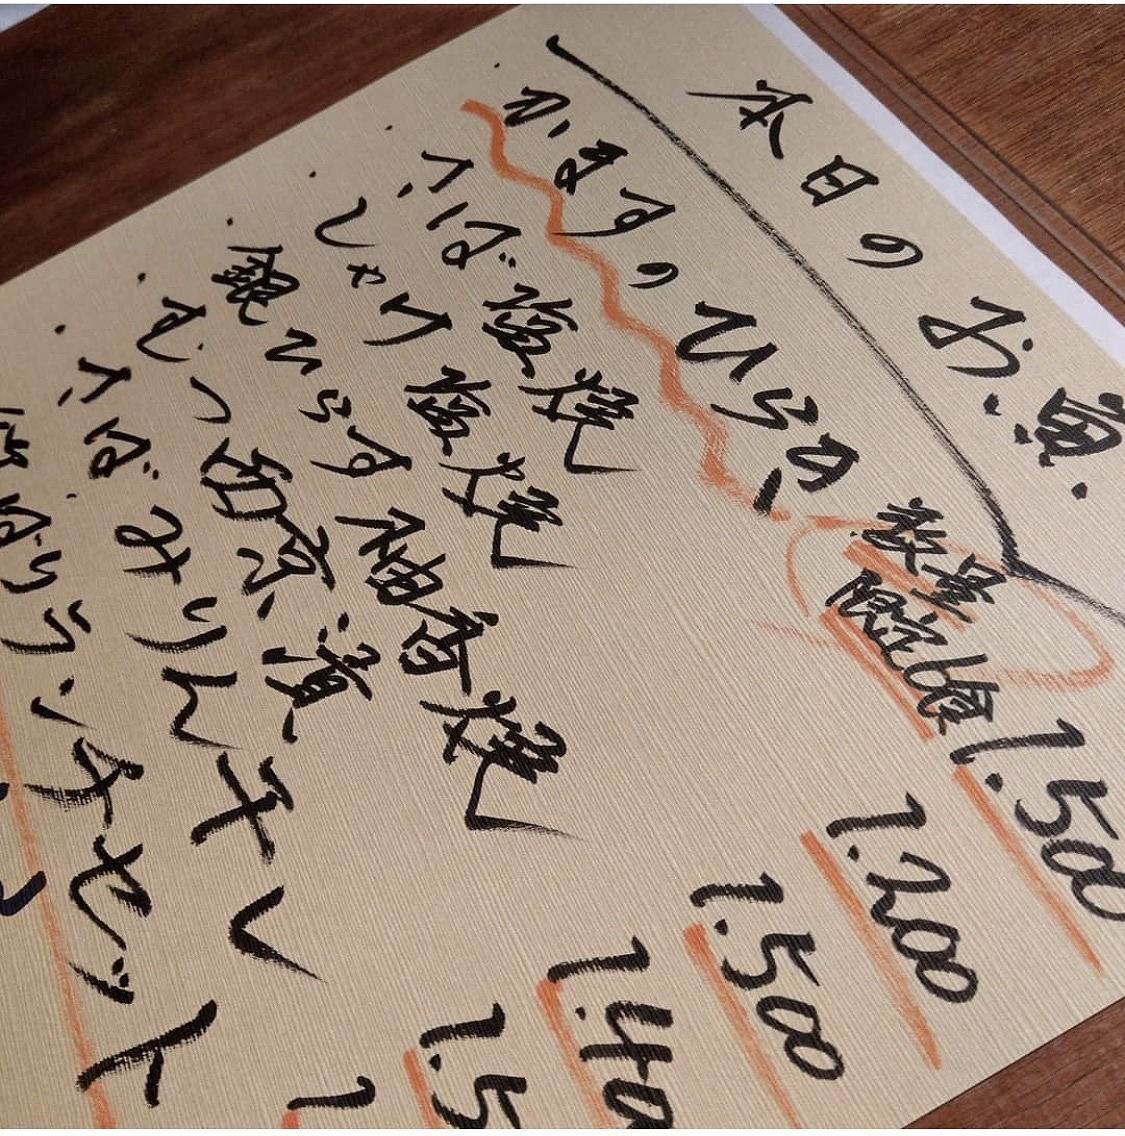 本日のお魚.
・かますのひらき
数量
限定6食
1.500
・さば塩焼 1.200
・しゃけ塩焼 1.500
・銀ひらす柚香焼 1.40
・むつ西京漬 1.5
・さばみりん干し 1
ランチセット